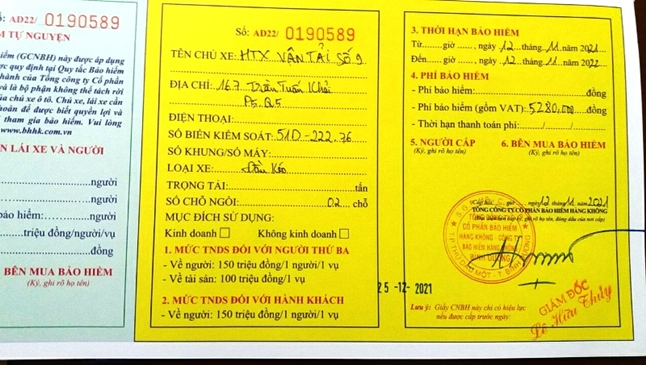 AD22/ 0190589
M TỰ NGUYỆN
iểm (GCNBH) này được áp dụng
ợc quy định tại Quy tắc Bảo hiểm
hành của Tổng công ty Cổ phần
và là bộ phận không thể tách rời
của chủ xe ô tô. Chủ xe, lái xe cần
toàn để được biết quyền lợi và
i tham gia bảo hiểm. Vui lòng
www.bhhk.com.vn
N LÁI XE VÀ NGƯỜI
người
người
hiểm: triệu đồng/người/vụ
đồng
BÊN MUA BẢO HIỂM
(Ký, ghi rõ họ tên)
Số: AD22/ 0190589
TÊN CHỦ XE: HTX VẬN TẢI SỐ 9
ĐỊA CHỈ: 167 Trần Tuấn Khải
P5. Q5
ĐIỆN THOẠI:
SỐ BIỂN KIỂM SOÁT: 51D-222.76
SỐ KHUNG/SỐ MÁY:
LOẠI XE: Đầu Kéo
TRỌNG TẢI: tấn
SỐ CHỖ NGỒI: 02 chỗ
MỤC ĐÍCH SỬ DỤNG:
Kinh doanh Không kinh doanh
1. MỨC TNDS ĐỐI VỚI NGƯỜI THỨ BA
- Về người: 150 triệu đồng/1 người/1 vụ
- Về tài sản: 100 triệu đồng/1 vụ
2. MỨC TNDS ĐỐI VỚI HÀNH KHÁCH
- Về người: 150 triệu đồng/1 người/1 vụ
3. THỜI HẠN BẢO HIỂM
Từ......giờ ......, ngày 12 tháng 11 năm 2021
Đến ......giờ ......, ngày 12 tháng 11 năm 2022
4. PHÍ BẢO HIỂM
- Phí bảo hiểm: đồng
- Phí bảo hiểm (gồm VAT): 5280,000 đồng
- Thời hạn thanh toán phí: / /
5. NGƯỜI CẤP 6. BÊN MUA BẢO HIỂM
(Ký, ghi rõ họ tên) (Ký, ghi rõ họ tên)
giờ, ngày 12 / 11 / 2021
TỔNG CÔNG TY CỔ PHẦN BẢO HIỂM HÀNG KHÔNG
CỔ PHẦN BẢO HIỂM
HÀNG KHÔNG - CÔNG TY
BẢO HIỂM HÀNG KHÔNG
BÌNH DƯƠNG
TP. THỦ DẦU MỘT - T. BÌNH DƯƠNG
25 -12- 2021
GIÁM ĐỐC
Lê Hữu Thủy
Lưu ý: Giấy CNBH này chỉ có hiệu lực
nếu được cấp trước ngày: